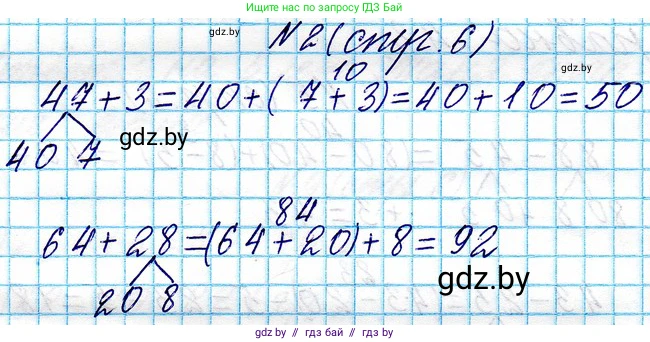 Ищите нас по запросу ГДЗ Бай
gdz.by
N2 (стр. 6)
gdz.by
10
47+3=40+(7+3)=40+10=50
40 7
gdz.by
84
64+28=(64+20)+8=92
20 8
gdz.by
gdz.by // гдз бай // гдз.by